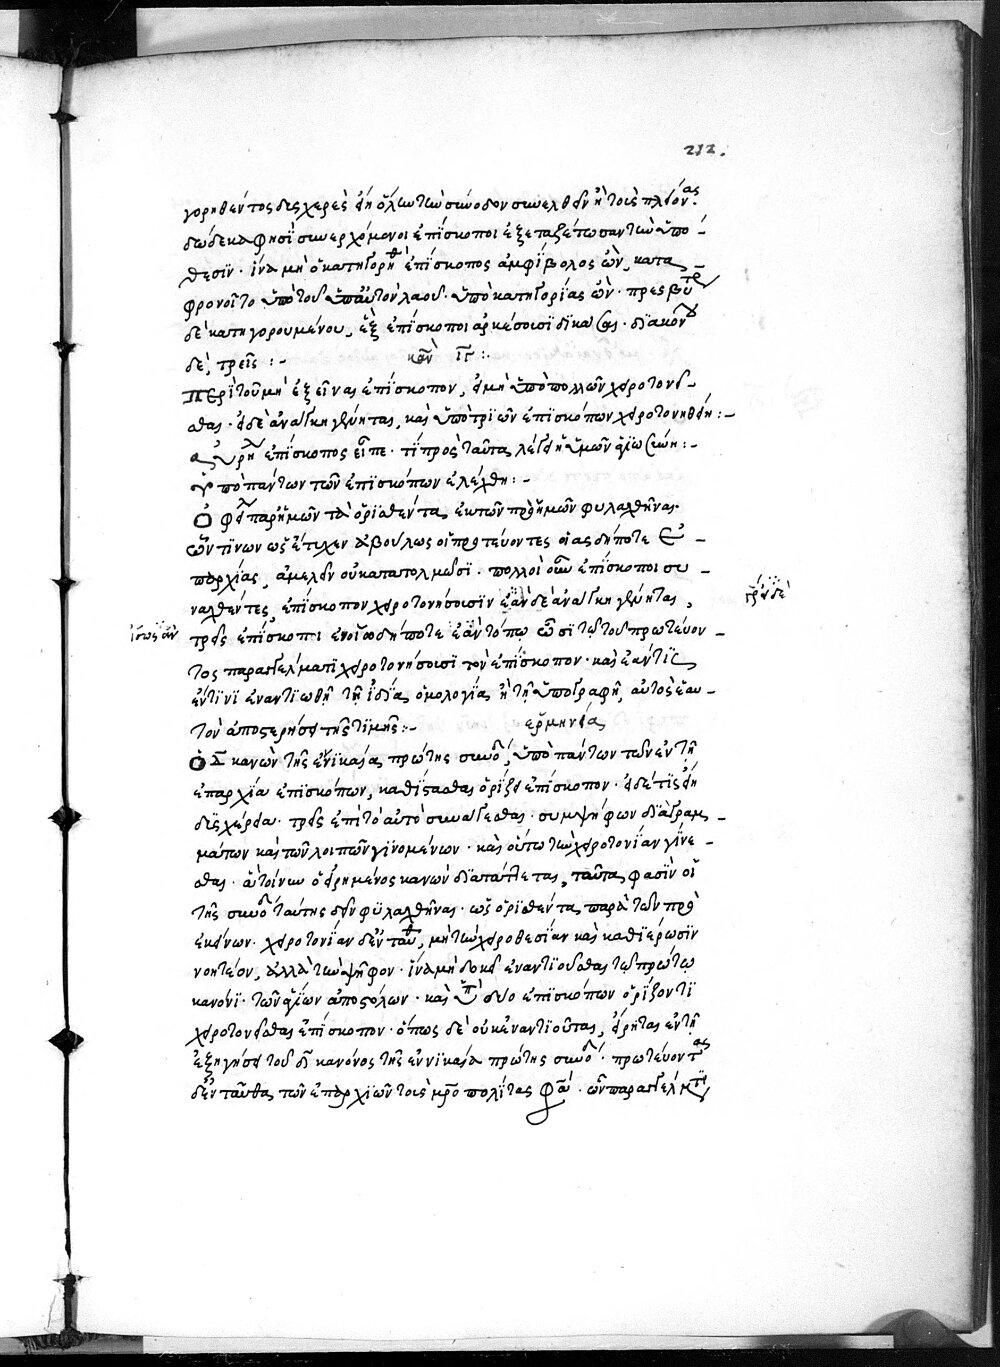 212.
γορηθέντος δυσχερὲς εἴη ὅλην τὴν σύνοδον συνελθεῖν ἢ τοὺς πλείονας.
δώδεκα φησὶ συνερχόμενοι ἐπίσκοποι ἐξεταζέτωσαν τὴν ὑπό-
θεσϊν · ἵνα μὴ ὁ κατηγορηθεὶς ἐπίσκοπος ἀμφίβολος ὢν, κατα-
φρονοῖτο ὑπὸ τοῦ ὑπ' αὐτὸν λαοῦ · ὑπὸ κατηγορίας ὢν · πρεσβυτέρου
δὲ κατηγορουμένου, ἓξ ἐπίσκοποι ἀρκέσουσι δικάσαι · διακόνου
δὲ, τρεῖς :- κανὼν ιγ :-
Περὶ τοῦ μὴ ἐξεῖναι ἐπίσκοπον, εἰ μὴ ὑπὸ πολλῶν χειροτονεῖ-
σθαι · εἰ δὲ ἀνάγκη γένηται, καὶ ὑπὸ τριῶν ἐπισκόπων χειροτονηθείη :-
Αὐρήλιος ἐπίσκοπος εἶπε · τί πρὸς ταῦτα λέγει ἡ ὑμῶν ἁγιωσύνη :-
Ὑπὸ πάντων τῶν ἐπισκόπων ἐλέχθη :-
Ὀφείλει παρ' ἡμῶν τὰ ὁρισθέντα, ἐκ τῶν πρὸ ἡμῶν φυλαχθῆναι ·
ὧν τινων ὡς ἔτυχεν ἀβούλως οἱ πρωτεύοντες οἱασδήποτε ἐ-
παρχίας, ἀμελεῖν οὐ κατατολμῶσι · πολλοὶ οὖν ἐπίσκοποι συ-
ναχθέντες, ἐπίσκοπον χειροτονήσουσιν ἐὰν δὲ ἀνάγκη γένηται,
γρ εἰ δὲ
ἴσως ἂν
τρεῖς ἐπίσκοποι ἐν οἱωδήποτε ἐὰν τόπω ὦσι τῶ τοῦ πρωτεύον-
τος παραγγέλματι χειροτονήσουσι τὸν ἐπίσκοπον · καὶ ἐάν τις
ἔν τινι ἐναντιωθῆ τῆ ἰδία ὁμολογία ἢ τῆ ὑπογραφῆ, αὐτὸς ἑαυ-
τὸν ἀποστερήσει τῆς τιμῆς :- ἑρμηνεία
Ὁ δ κανὼν τῆς ἐν νικαία πρώτης συνόδου, ὑπὸ πάντων τῶν ἐν τῆ
ἐπαρχία ἐπισκόπων, καθίστασθαι ὁρίζει ἐπίσκοπον · εἰ δέ τις εἴη
δυσχέρεια · τρεῖς ἐπὶ τὸ αὐτὸ συνάγεσθαι · συμψήφων διὰ γραμ-
μάτων καὶ τῶν λοιπῶν γινομένων · καὶ οὕτω τὴν χειροτονίαν γίνε-
σθαι · ἃ τοίνυν ὁ εἰρημένος κανὼν διατάττεται, ταῦτα φασὶν οἱ
τῆς συνόδου ταύτης δεῖν φυλαχθῆναι · ὡς ὁρισθέντα παρὰ τῶν πρὸ
ἐκείνων · χειροτονίαν δ' ἐνταῦθα, μὴ τὴν χειροθεσίαν καὶ καθιέρωσιν
νοητέον, ἀλλὰ τὴν ψῆφον · ἵνα μὴ δοκεῖ ἐναντιοῦσθαι τῶ πρώτω
κανόνι · τῶν ἁγίων ἀποστόλων · καὶ ὑπὸ δύο ἐπισκόπων ὁρίζοντι
χειροτονεῖσθαι ἐπίσκοπον · ὅπως δὲ οὐκ ἐναντιοῦται, εἴρηται ἐν τῆ
ἐξηγήσει τοῦ δ κανόνος τῆς ἐν νικαία πρώτης συνόδου · πρωτεύοντας
δ' ἐνταῦθα, τῶν ἐπαρχιῶν τοὺς μητροπολίτας φασὶ · ὧν παραγγέλματι